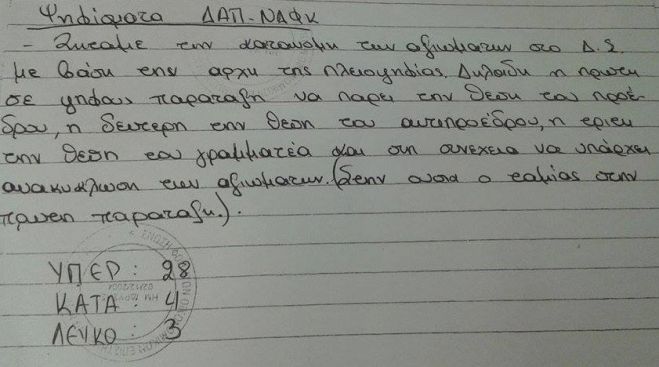 Ψηφίσματα ΔΑΠ-ΝΔΦΚ
- Ζηταμε την κατανομη των αξιωματων στο Δ.Σ.
με βάση την αρχη της πλειοψηφίας. Δηλαδη η πρωτη
σε ψηφους παραταξη να παρει την θεση του προέ-
δρου, η δευτερη την θεση του αντιπροέδρου, η τριτη
την θεση του γραμματέα και στη συνεχεια να υπάρχει
ανακυκλωση των αξιωματων. (δηλ ο ταμίας στην
πρωτη παραταξη.).
ΥΠΕΡ: 28
ΚΑΤΑ: 4
ΛΕΥΚΟ: 3